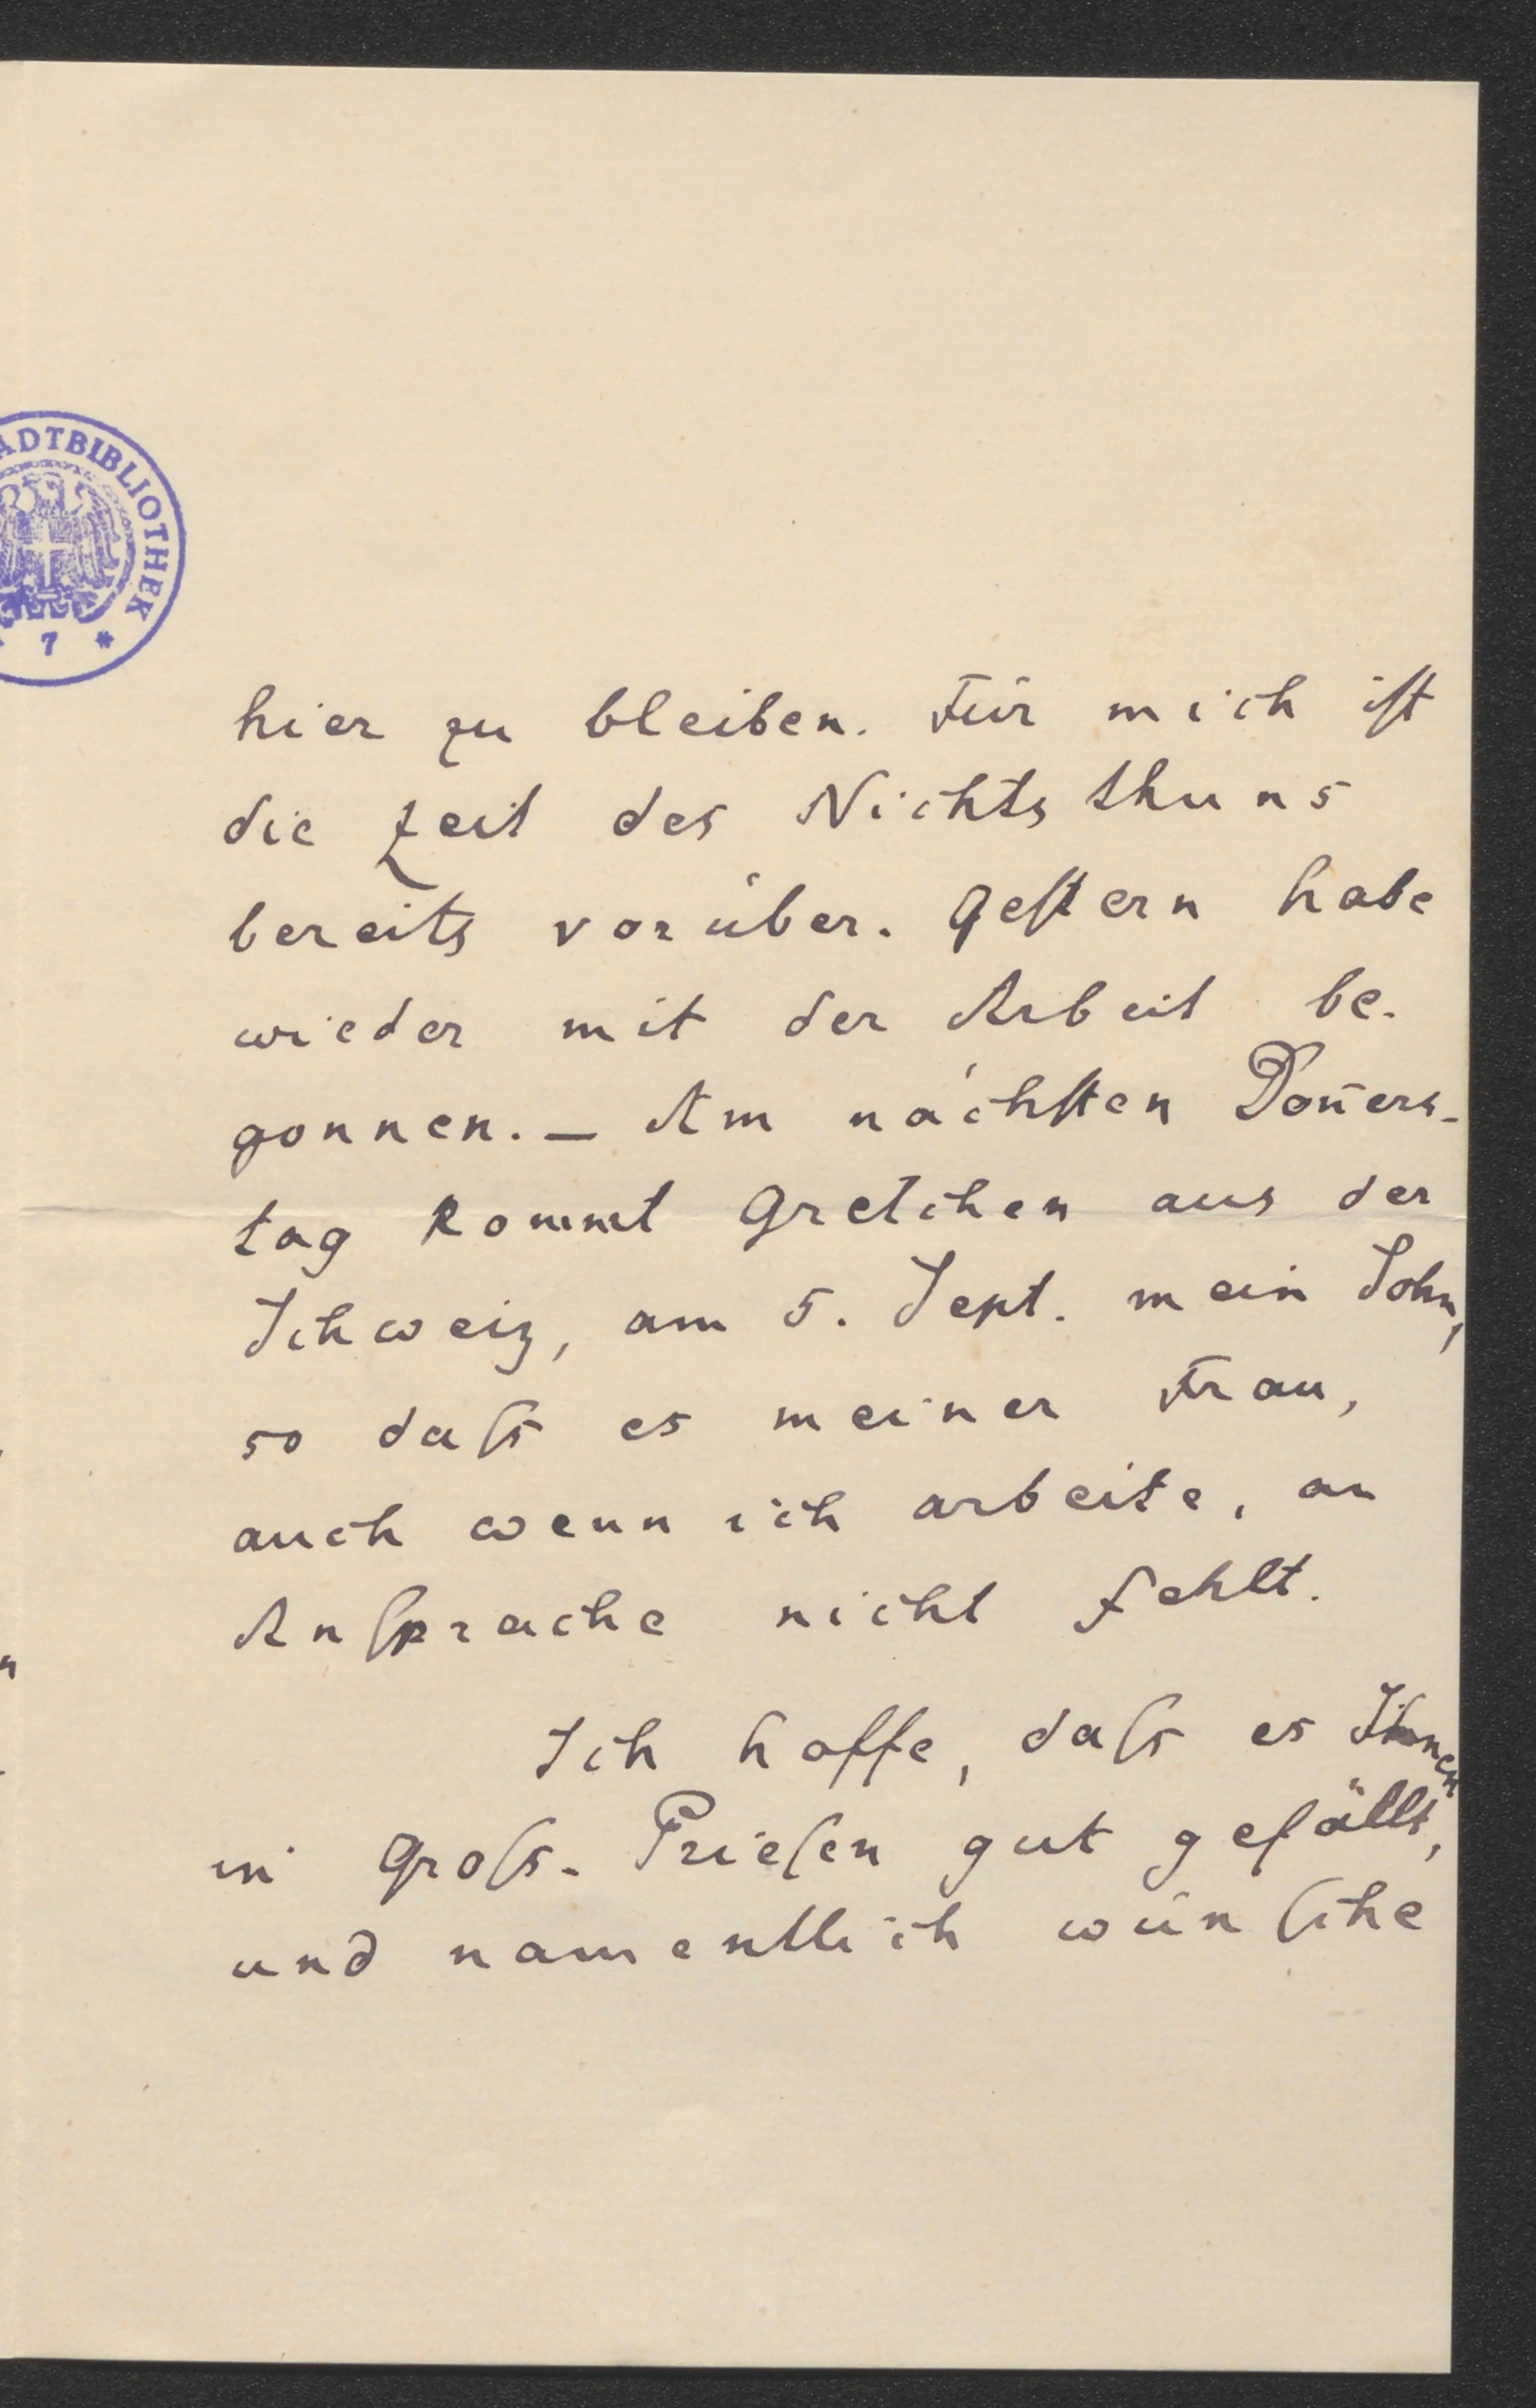 ADTBIBLIOTHEK
7 *
hier zu bleiben. Für mich iſt
die Zeit des Nichtsthuns
bereits vorüber. Geſtern habe
wieder mit der Arbeit be-
gonnen. — Am nächſten Don̄ers-
tag kommt Gretchen aus der
Schweiz, am 5. Sept. mein Sohn,
so daſs es meiner Frau,
auch wenn ich arbeite, an
Anſprache nicht fehlt.
Ich hoffe, daſs es Ihnen
in Groſs-Prieſen gut gefällt,
und namentlich wünſche